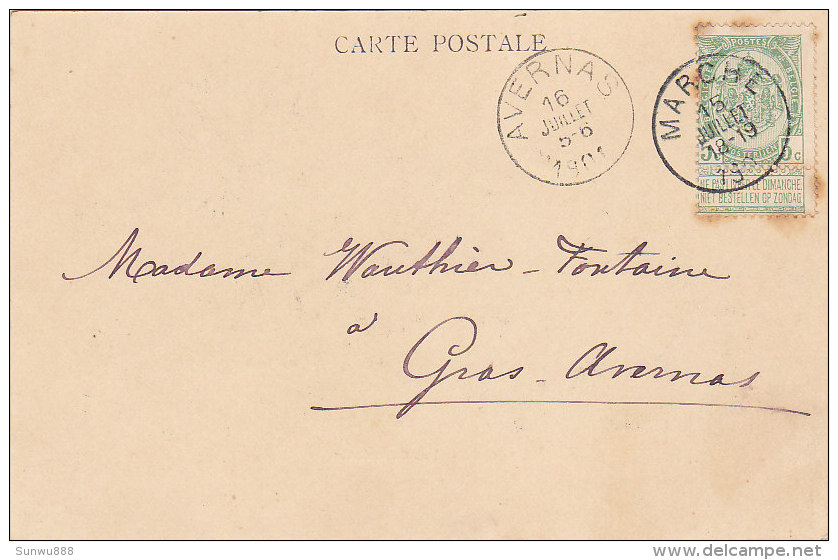 CARTE POSTALE
AVERNAS
16
JUILLET
5-6
1901
MARCHE
15
JUILLET
18-19
19
POSTES
5 5c
NE PAS LIVRER LE DIMANCHE
NIET BESTELLEN OP ZONDAG
Madame Wauthier-Fontaine
à
Gras-Avernas
Sunwu888
delcampe.net